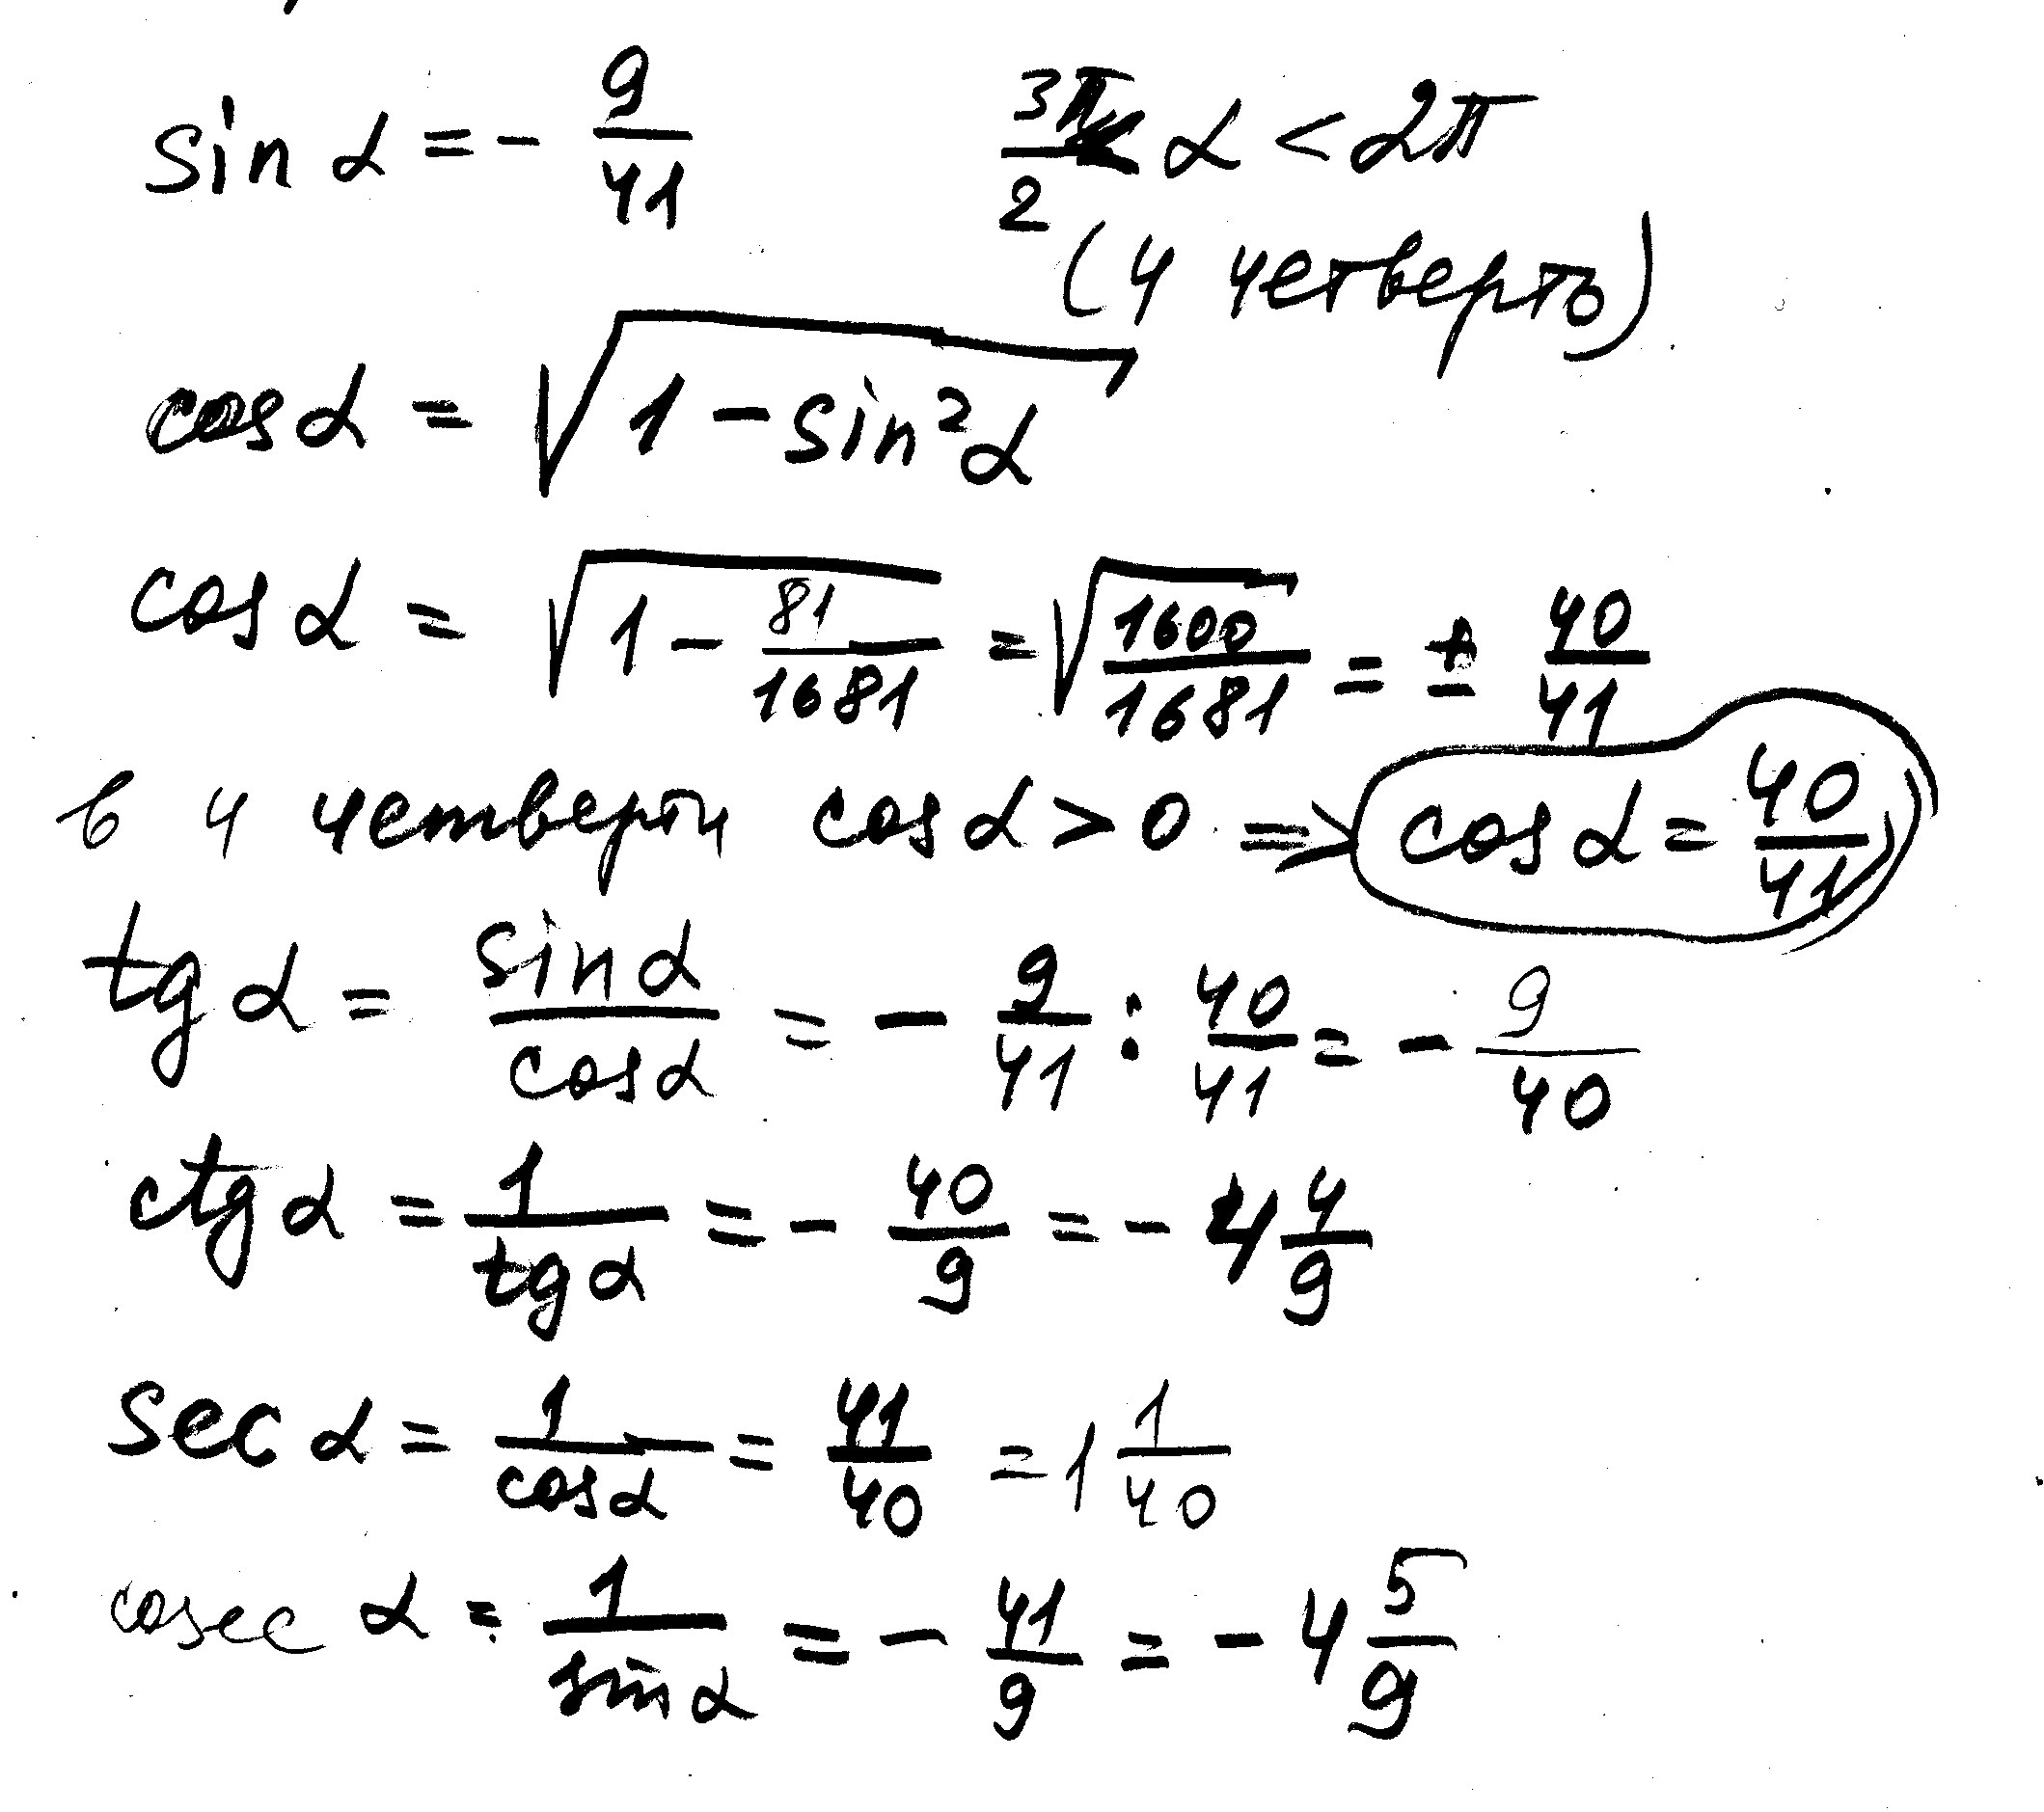 sin α = - 9/41    3π/2 < α < 2π
(4 четверть)
cos α = √(1 - sin²α)
cos α = √(1 - 81/1681) = √(1600/1681) = ± 40/41
в 4 четверти cos α > 0 => cos α = 40/41
tg α = sin α/cos α = - 9/41 : 40/41 = - 9/40
ctg α = 1/tg α = - 40/9 = - 4 4/9
sec α = 1/cos α = 41/40 = 1 1/40
cosec α = 1/sin α = - 41/9 = - 4 5/9